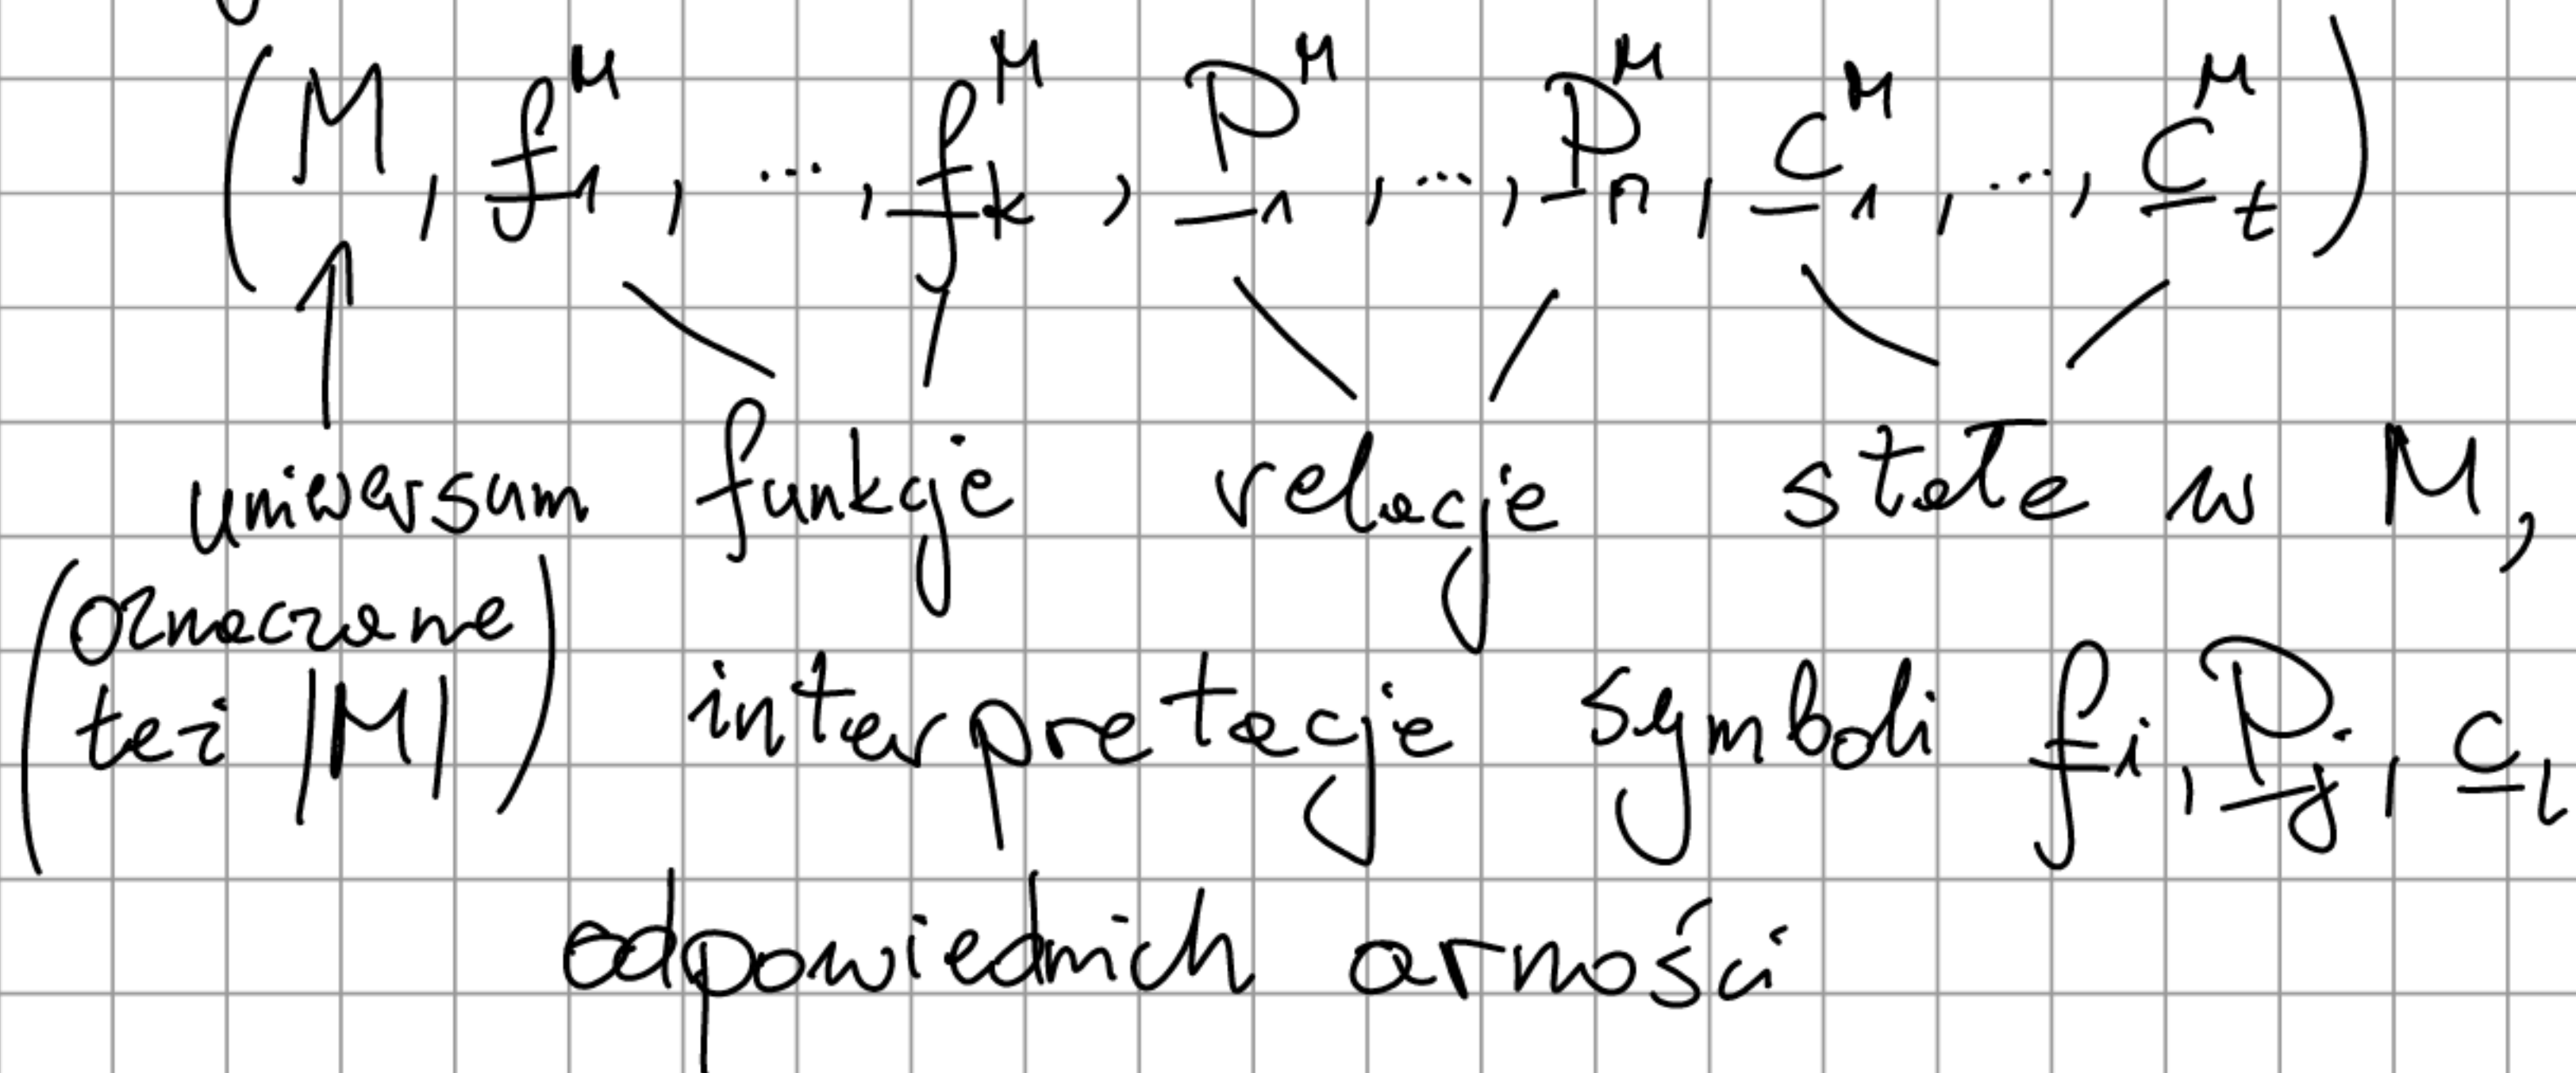 (M, f₁ᴹ, ..., fₖᴹ, P₁ᴹ, ..., Pₙᴹ, c₁ᴹ, ..., cₜᴹ)
uniwersum funkcje relacje stałe w M,
(oznaczane
też |M|) interpretacje symboli fᵢ, Pⱼ, cₗ
odpowiednich arności